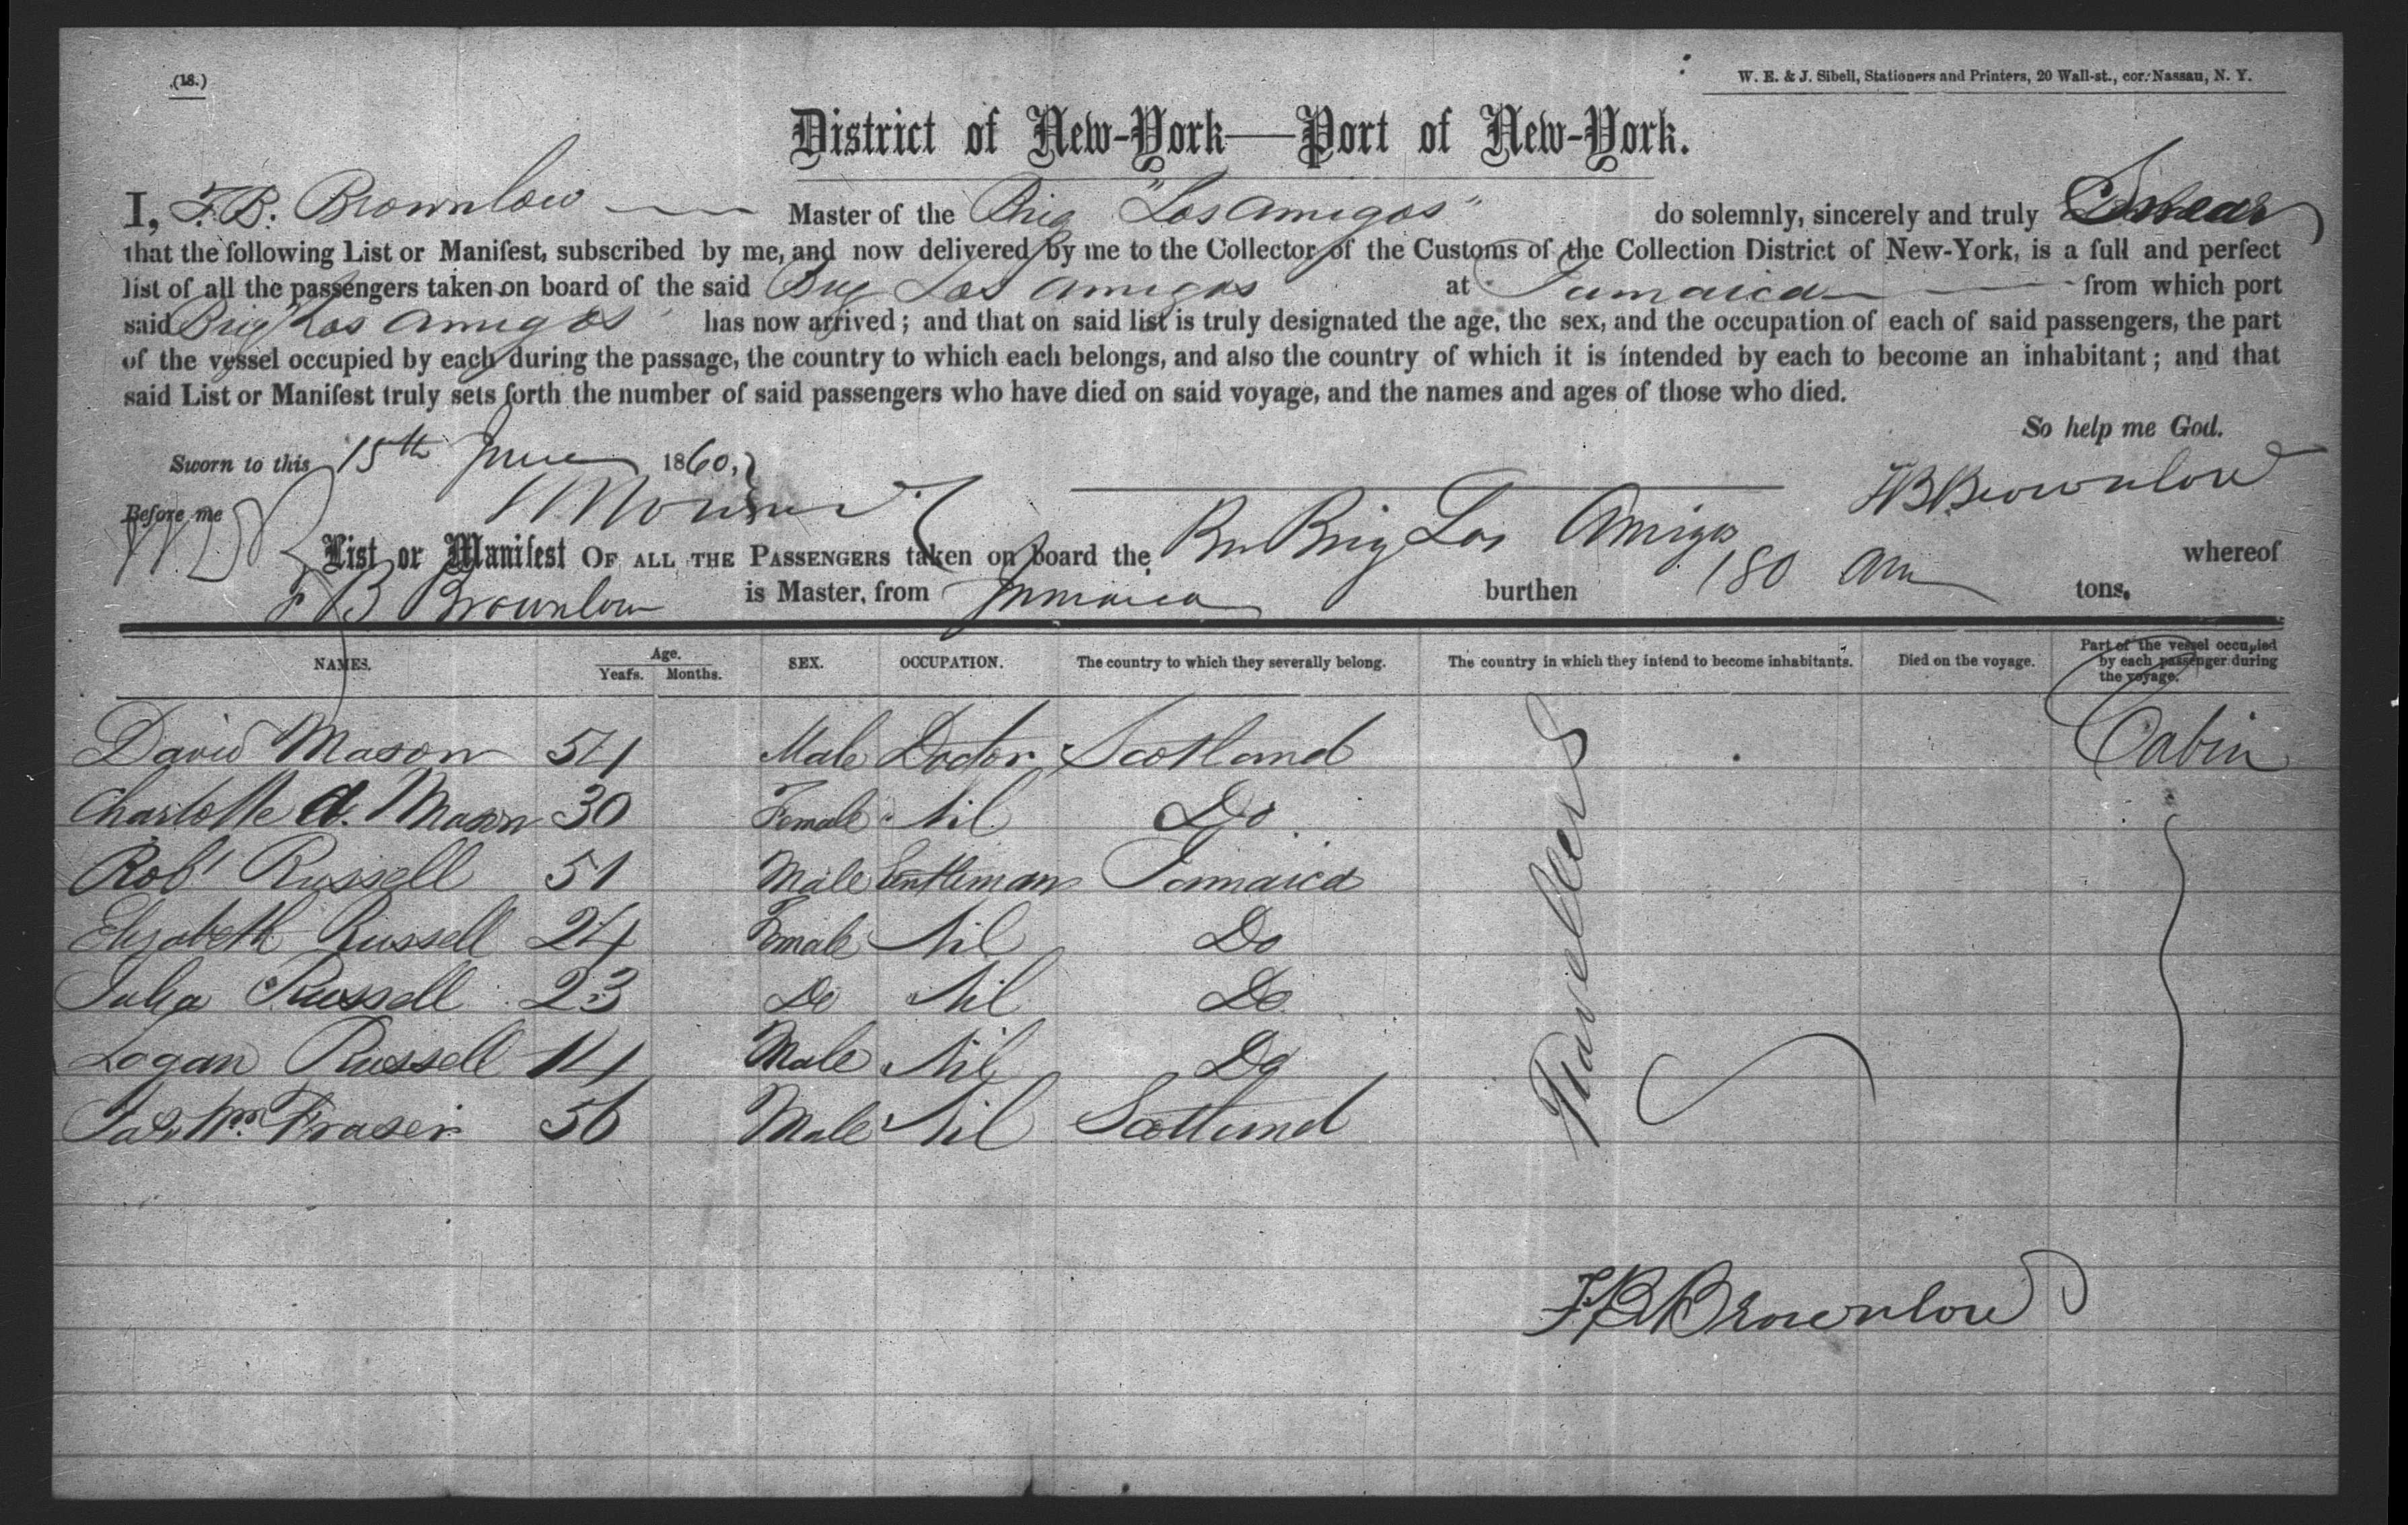 (18.)
W. E. & J. Sibell, Stationers and Printers, 20 Wall-st., cor. Nassau, N. Y.
District of New-York—Port of New-York.
I, F. B. Brownlow Master of the Brig "Los Amigos" do solemnly, sincerely and truly Swear
that the following List or Manifest, subscribed by me, and now delivered by me to the Collector of the Customs of the Collection District of New-York, is a full and perfect
list of all the passengers taken on board of the said Brig Los Amigos at Jamaica from which port
said Brig "Los Amigos" has now arrived; and that on said list is truly designated the age, the sex, and the occupation of each of said passengers, the part
of the vessel occupied by each during the passage, the country to which each belongs, and also the country of which it is intended by each to become an inhabitant; and that
said List or Manifest truly sets forth the number of said passengers who have died on said voyage, and the names and ages of those who died.
So help me God.
Sworn to this 15th June 1860,
F B Brownlow
Before me
List or Manifest OF ALL THE PASSENGERS taken on board the Br Brig Los Amigos whereof
F B Brownlow is Master, from Jamaica burthen 180 tons.
NAMES. Age. Years. Months. SEX. OCCUPATION. The country to which they severally belong. The country in which they intend to become inhabitants. Died on the voyage. Part of the vessel occupied by each passenger during the voyage.
David Mason 54 Male Doctor Scotland Cabin
Charlotte A. Mason 30 Female Nil Do
Robt Russell 51 Male Gentleman Jamaica
Elizabeth Russell 24 Female Nil Do
Julia Russell 23 Do Nil Do
Logan Russell 14 Male Nil Do
Fraser 56 Male Nil Scotland
Travellers
F B Brownlow